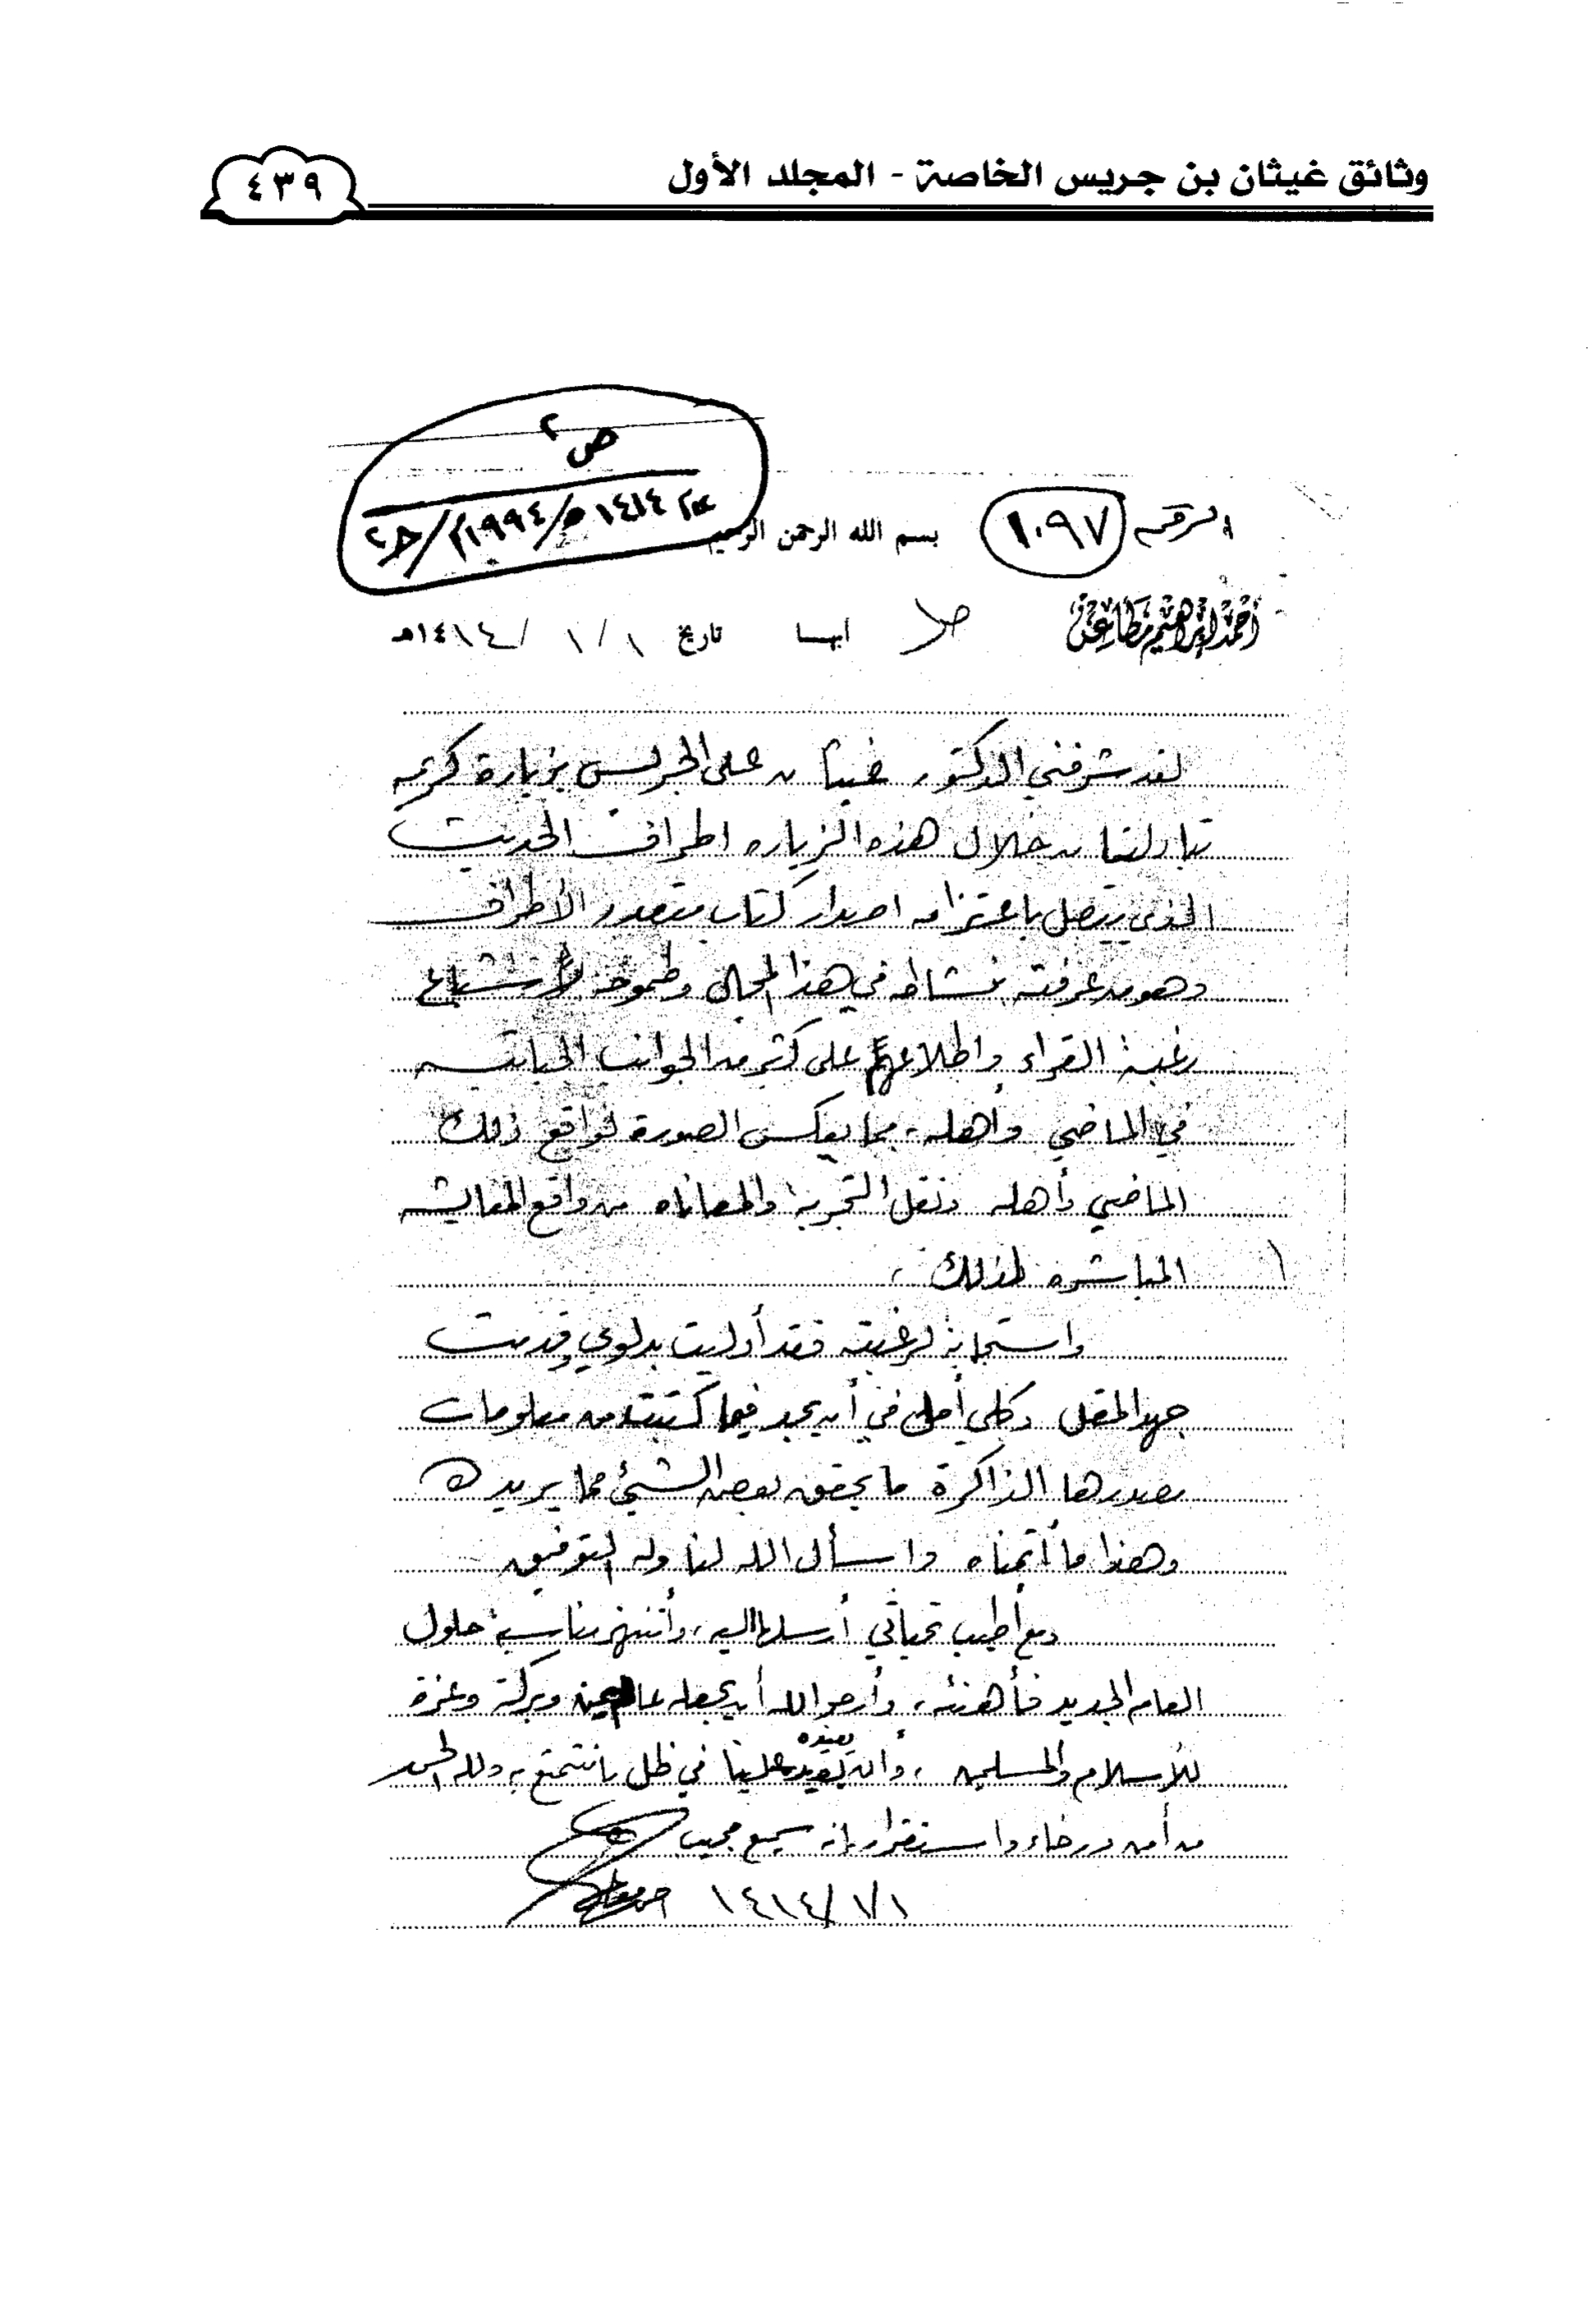 وثائق غيثان بن جريس الخاصة - المجلد الأول
٤٣٩
ص٢
١٤١٤هـ/١٩٩٤م/حـ٢
الرقم ١٠٩٧
بسم الله الرحمن الرحيم
أحمد إبراهيم مطاعن
أبها تاريخ ١ / ١ / ١٤١٤هـ
لقد شرفني الدكتور غيثان علي الجريس بزيارة كريمه
تبادلنا من خلال هذه الزياره اطراف الحديث
الذي يتصل باعتزامه اصدار كتاب متعدد الأطراف
وهو من عرفته بنشاطه في هذا المجال وطموحه لإشباع
رغبة القراء واطلاعهم على كثير من الجوانب الحياتيه
في الماضي وأهله، مما يعكس الصورة لواقع ذلك
الماضي وأهله ونقل التجربة والمعاناه من واقع المعايشه
المباشره لذلك ،
واستجابة لرغبته فقد أدليت بدلوي وقدمت
جهد المقل وكلي أمل في أن يجد فيما كتبته من معلومات
مصدرها الذاكرة ما يحقق بعض الشيئ مما يريده
وهذا ما أتمناه واسأل الله لنا وله التوفيق
ومع أطيب تحياتي أرسلها اليه، وأنتهز مناسبة حلول
العام الجديد فأهنئه، وأرجو الله أن يجعله عام يمن وبركة وعزة
للأسلام والمسلمين ، وأن يعيده علينا في ظل ما نتمتع به ولله الحمد
يعيده
من أمن ورخاء واستقرار إنه سميع مجيب
١/١/١٤١٤ أحمد مطاعن